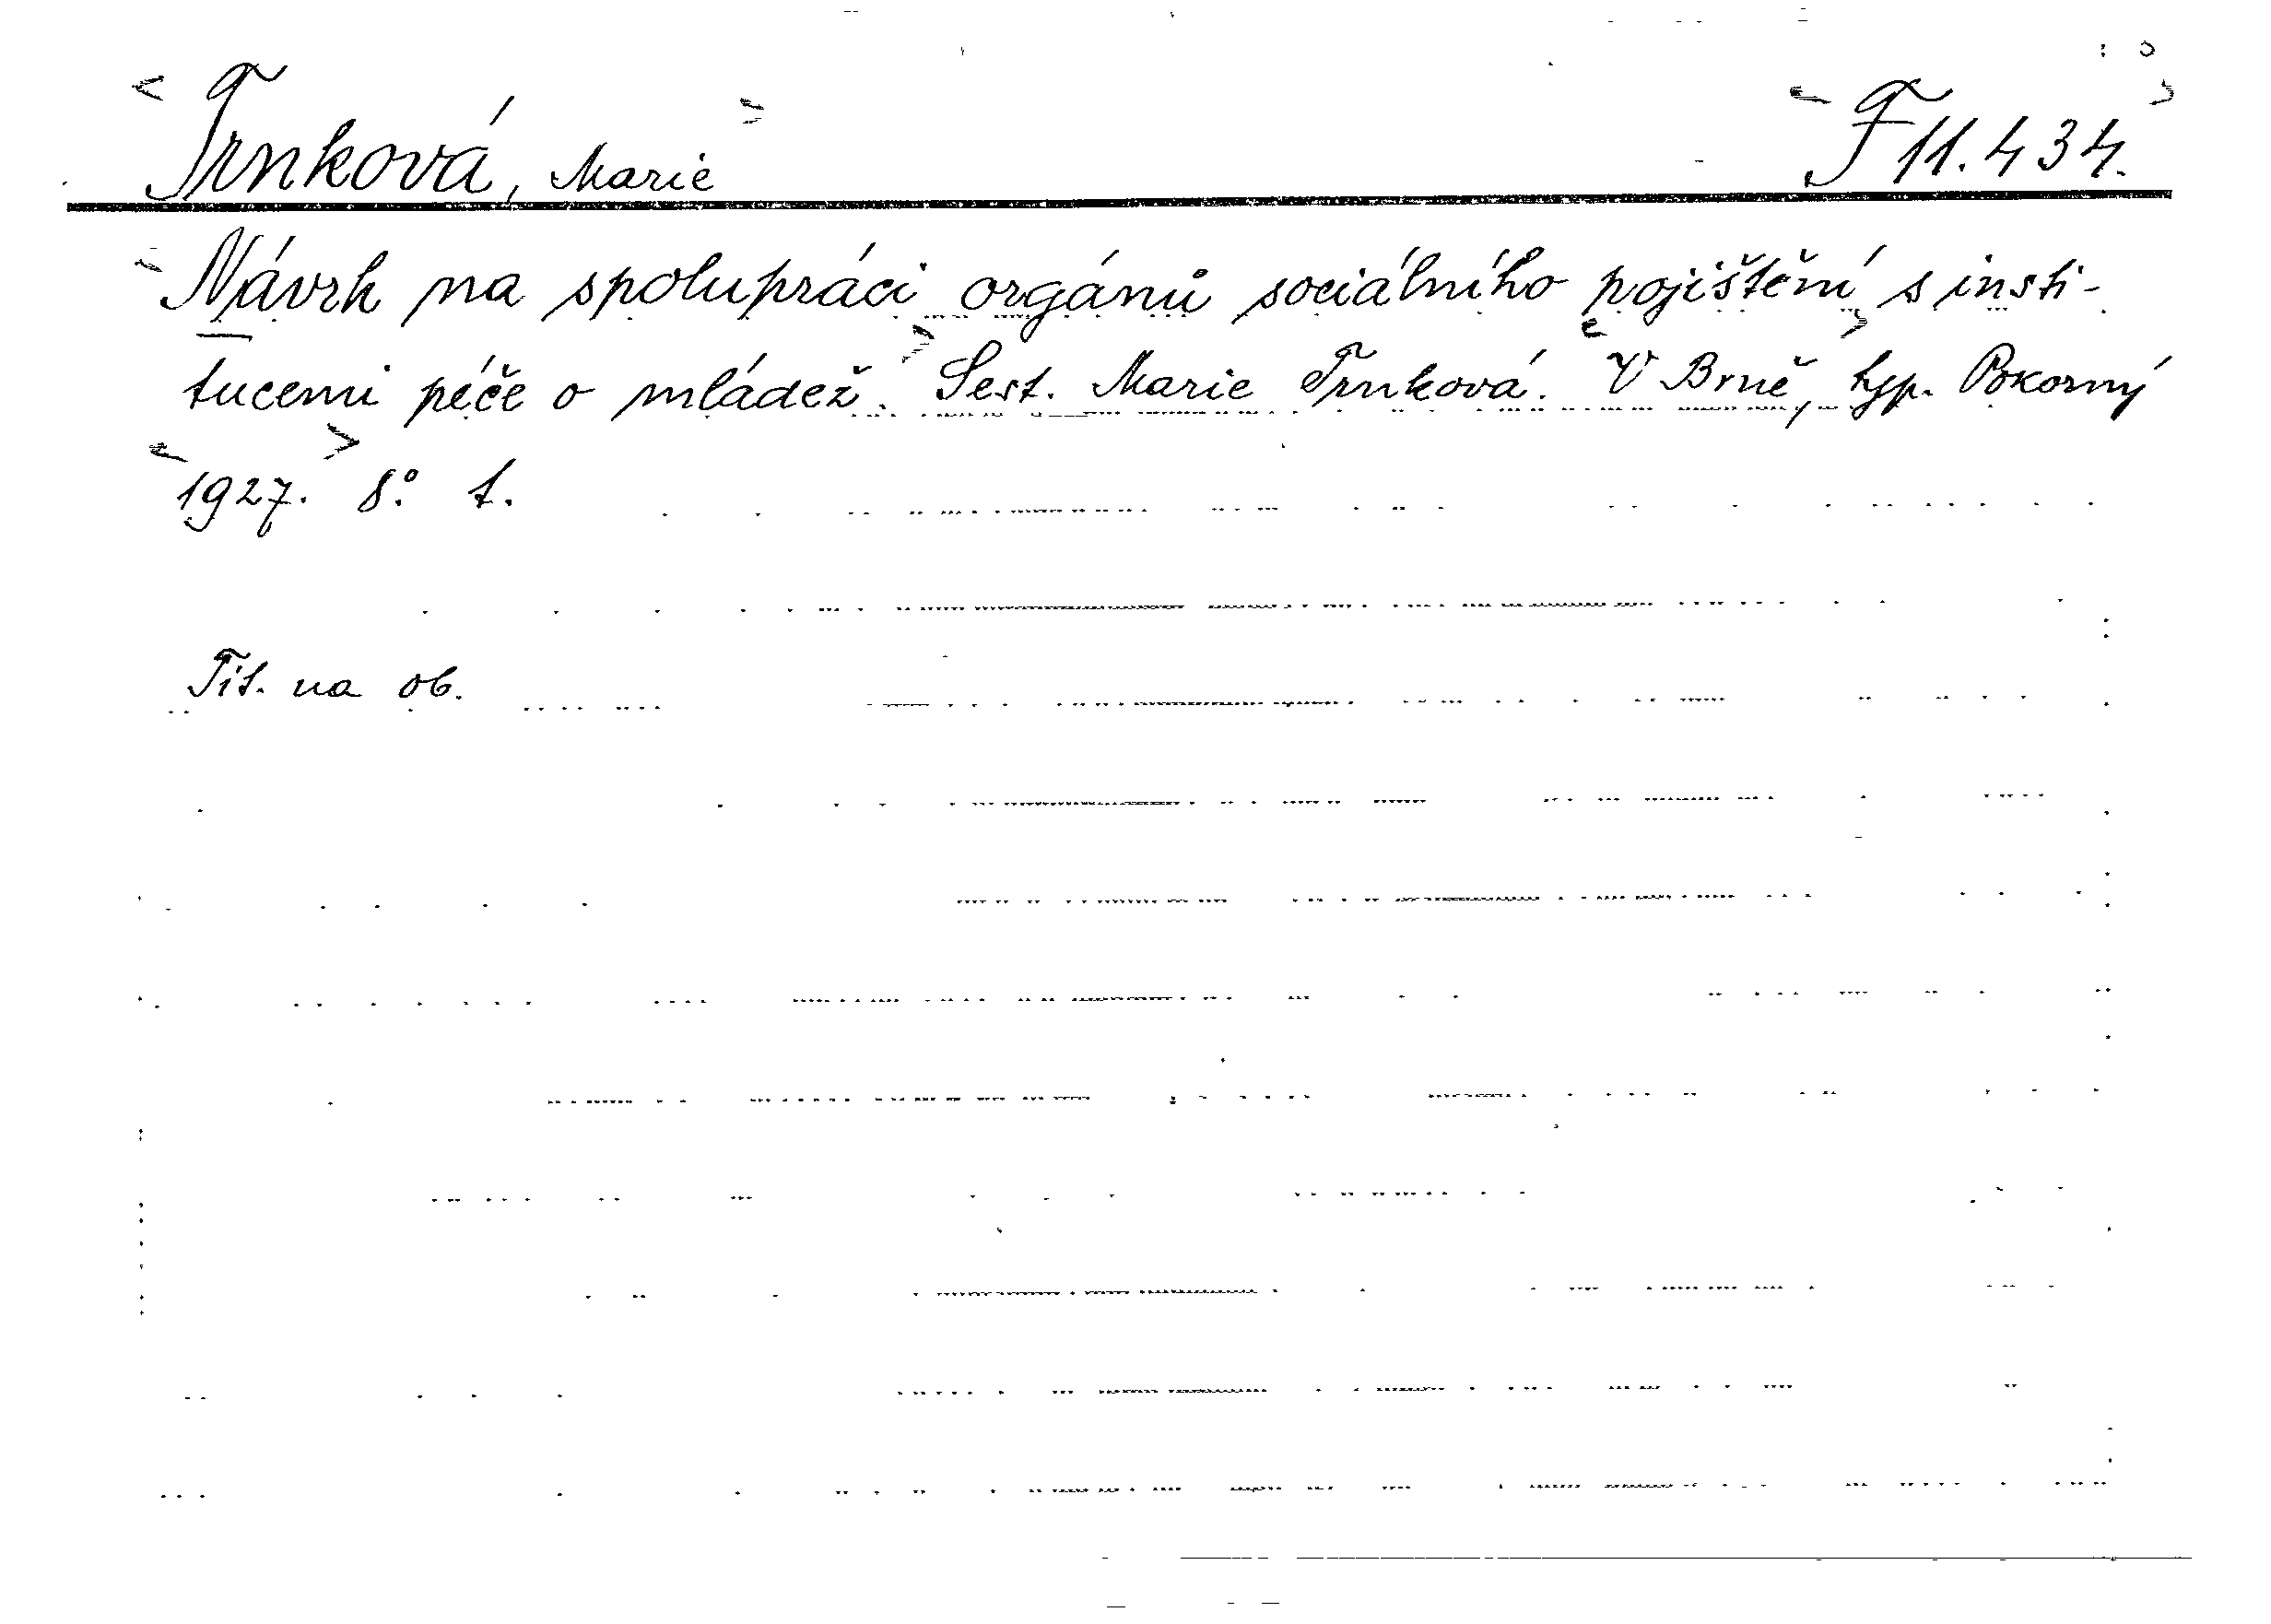 Trnková, Marie F 11.434.
Návrh na spolupráci orgánů sociálního pojištění s insti-
tucemi péče o mládež. Sest. Marie Trnková. V Brně, typ. Pokorný
1927. 8°. 1.
Tit. na ob.